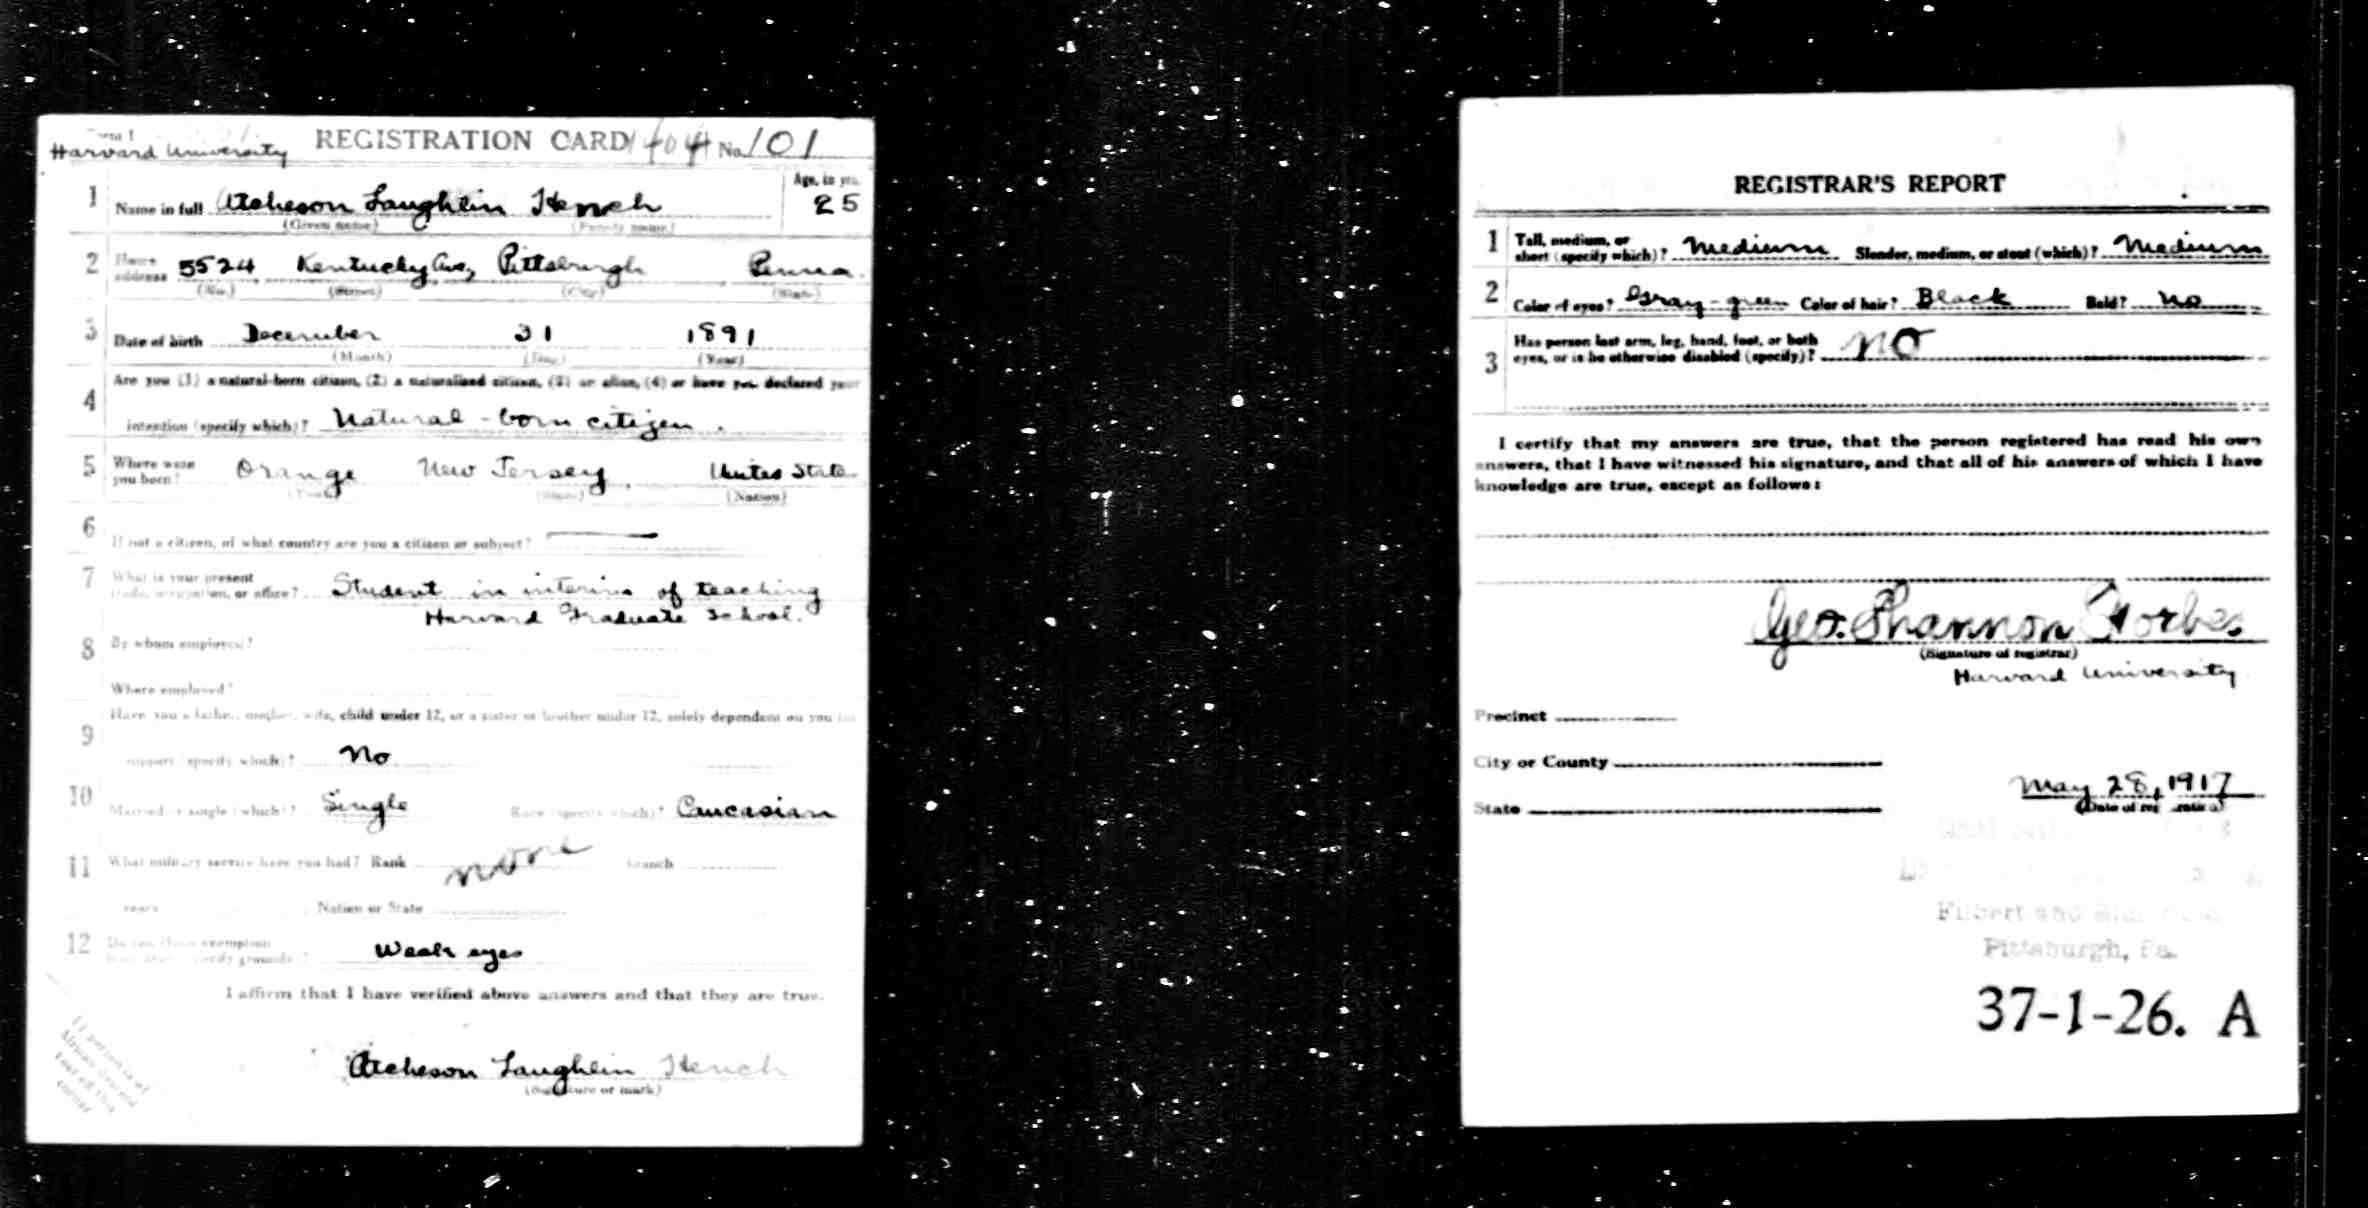 Form 1
Harvard University
REGISTRATION CARD No. 101
Age, in yrs.
1 Name in full Atcheson Laughlin Hench 25
(Given name) (Family name)
2 Home address 5524 Kentucky Ave, Pittsburgh Penna.
(No.) (Street) (City) (State)
3 Date of birth December 31 1891
(Month) (Day) (Year)
Are you (1) a natural-born citizen, (2) a naturalized citizen, (3) an alien, (4) or have you declared your
4
intention (specify which)? Natural-born citizen.
5 Where were you born? Orange New Jersey, Unites State
(Town) (State) (Nation)
6
If not a citizen, of what country are you a citizen or subject?
7 What is your present trade, occupation, or office? Student in interim of teaching
Harvard Graduate School.
8 By whom employed?
Where employed?
Have you a father, mother, wife, child under 12, or a sister or brother under 12, solely dependent on you for
9
support (specify which)? No
10 Married or single (which)? Single Race (specify which)? Caucasian
11 What military service have you had? Rank none branch
years Nation or State
12 Do you claim exemption from draft (specify grounds)? Weak eyes
I affirm that I have verified above answers and that they are true.
Atcheson Laughlin Hench
(Signature or mark)
If person is of
African descent
tear off this
corner
REGISTRAR'S REPORT
1 Tall, medium, or short (specify which)? Medium Slender, medium, or stout (which)? Medium
2 Color of eyes? Gray-green Color of hair? Black Bald? No
3 Has person lost arm, leg, hand, foot, or both eyes, or is he otherwise disabled (specify)? No
I certify that my answers are true, that the person registered has read his own
answers, that I have witnessed his signature, and that all of his answers of which I have
knowledge are true, except as follows:
Geo. Shannon Forbes
(Signature of registrar)
Harvard University
Precinct
City or County
May 28, 1917
State
(Date of registration)
Filbert and
Pittsburgh, Pa.
37-1-26. A